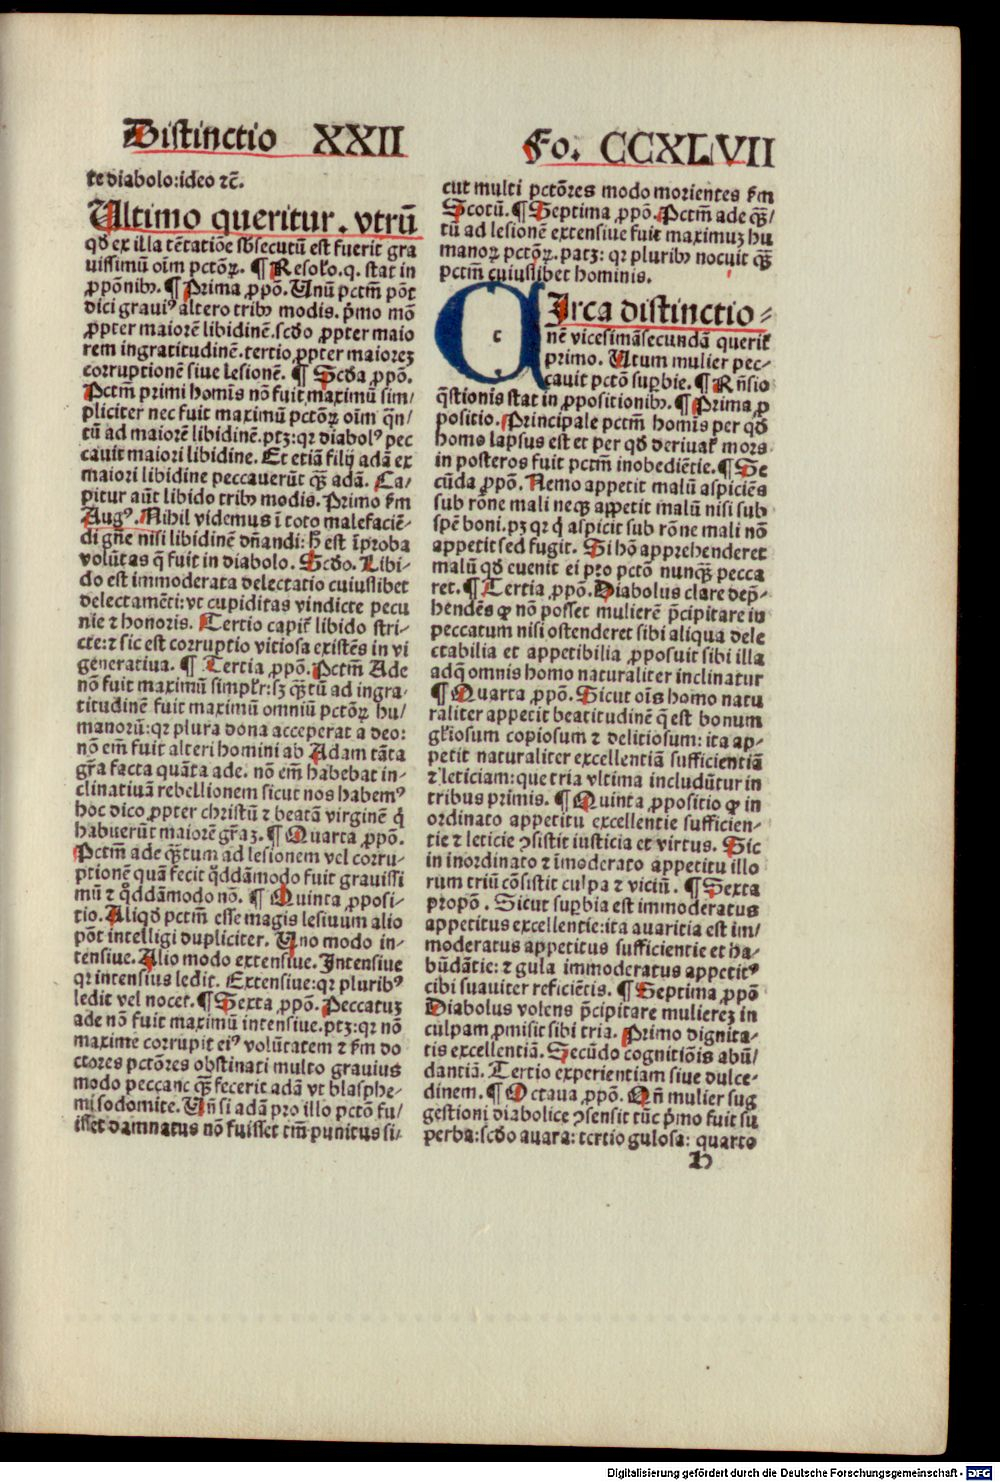 Distinctio XXII
Fo. CCXLVII
te diabolo: ideo ⁊c̄.
Ultimo queritur. vtrū
qď ex illa tētatiōe sb̓secutū est fuerit gra
uissimū oīm pctōꝝ. ¶ Resolo. q. stat in
ꝓpōnibꝰ. ¶ Prima ꝓpō. Unū pctm̄ pōt
dici grauiꝰ altero tribꝰ modis. p̄mo mō
ꝓpter maiorē libidinē. scďo ꝓpter maio
rem ingratitudinē. tertio ꝓpter maiorez
corruptionē siue lesionē. ¶ Scďa ꝓpō.
Pctm̄ primi homīs nō fuit maximū sim/
pliciter nec fuit maximū pctōꝝ oīm qn̄/
tū ad maiorē libidinē. ptꝫ: qꝛ diabolꝰ pec
cauit maiori libidine. Et etiā filij adā ex
maiori libidine peccauerūt qȝ̄ adā. Ca/
pitur aūt libido tribꝰ modis. Primo ẜm
Augꝰ. Nihil videmus ī toto malefaciē-
di gn̄e nisi libidinē dn̄andi: h̄ est īproba
volūtas q̄ fuit in diabolo. Scďo. Libi-
do est immoderata delectatio cuiuslibet
delectamēti: vt cupiditas vindicte pecu
nie ⁊ honoris. Tertio capit̃ libido stri-
cte: ⁊ sic est corruptio vitiosa existēs in vi
generatiua. ¶ Tertia ꝓpō. Pctm̄ Ade
nō fuit maximū simplr̃: sꝫ qȝ̄tū ad ingra-
titudinē fuit maximū omniū pctōꝝ hu/
manorū: qꝛ plura dona acceperat a deo:
nō em̄ fuit alteri homini ab Adam tāta
gr̄a facta quāta ade. nō em̄ habebat in-
clinatiuā rebellionem sicut nos habemꝰ
hoc dico ꝓpter christū ⁊ beatā virginē q̓
habuerūt maiorē gr̄aꝫ. ¶ Quarta ꝓpō.
Pctm̄ ade qȝ̄tum ad lesionem vel corru-
ptionē quā fecit q̊ddāmodo fuit grauissi
mū ⁊ q̊ddāmodo nō. ¶ Quinta ꝓposi-
tio. Aliqď pctm̄ esse magis lesiuum alio
pōt intelligi dupliciter. Uno modo in-
tensiue. Alio modo extensiue. Intensiue
qꝛ intensius ledit. Extensiue: qꝛ pluribꝰ
ledit vel nocet. ¶ Sexta ꝓpō. Peccatuꝫ
ade nō fuit maximū intensiue. ptꝫ: qꝛ nō
maxime corrupit eiꝰ volūtatem ⁊ ẜm do
ctores pctōres obstinati multo grauius
modo peccant qȝ̄ fecerit adā vt blasphe-
mi sodomite. Un̄ si adā pro illo pctō fu/
isset damnatus nō fuisset tm̄ punitus si-
cut multi pctōres modo morientes ẜm
Scotū. ¶ Septima ꝓpō. Pctm̄ ade qȝ̄/
tū ad lesionē extensiue fuit maximuꝫ hu
manoꝝ pctōꝝ. patꝫ: qꝛ pluribꝰ nocuit qȝ̄
pctm̄ cuiuslibet hominis.
c
Irca distinctio-
nē vicesimāsecundā querit̃
primo. Utum mulier pec-
cauit pctō suꝑbie. ¶ Rn̄sio
q̄stionis stat in ꝓpositionibꝰ. ¶ Prima ꝓ
positio. Principale pctm̄ homīs per qď
homo lapsus est et per qď deriuat̃ mors
in posteros fuit pctm̄ inobediētie. ¶ Se
cūda ꝓpō. Nemo appetit malū aspiciēs
sub rōne mali neqȝ appetit malū nisi sub
spē boni. pꝫ qꝛ q̓ aspicit sub rōne mali nō
appetit sed fugit. Si hō apprehenderet
malū qď euenit ei pro pctō nunqȝ̄ pecca
ret. ¶ Tertia ꝓpō. Diabolus clare dep̄-
hendēs ꝙ nō posset mulierē p̄cipitare in
peccatum nisi ostenderet sibi aliqua dele
ctabilia et appetibilia ꝓposuit sibi illa
adq̄ omnis homo naturaliter inclinatur
¶ Quarta ꝓpō. Sicut oīs homo natu
raliter appetit beatitudinē q̄ est bonum
gl̃iosum copiosum ⁊ delitiosum: ita ap-
petit naturaliter excellentiā sufficientiā
⁊ leticiam: que tria vltima includūtur in
tribus primis. ¶ Quinta ꝓpositio ꝙ in
ordinato appetitu excellentie sufficien-
tie ⁊ leticie ꝯsistit iusticia et virtus. Sic
in inordinato ⁊ īmoderato appetitu illo
rum triū cōsistit culpa ⁊ viciū. ¶ Sexta
propō. Sicut suꝑbia est immoderatus
appetitus excellentie: ita auaritia est im/
moderatus appetitus sufficientie et ha-
būdātie: ⁊ gula immoderatus appetitꝰ
cibi suauiter reficiētis. ¶ Septima ꝓpō
Diabolus volens p̄cipitare mulierez in
culpam ꝓmisit sibi tria. Primo dignita-
tis excellentiā. Secūdo cognitiōis abū/
dantiā. Tertio experientiam siue dulce-
dinem. ¶ Octaua ꝓpō. Qn̄ mulier sug
gestioni diabolice ꝯsensit tūc p̄mo fuit su
perba: scďo auara: tertio gulosa: quarto
Digitalisierung gefördert durch die Deutsche Forschungsgemeinschaft - DFG